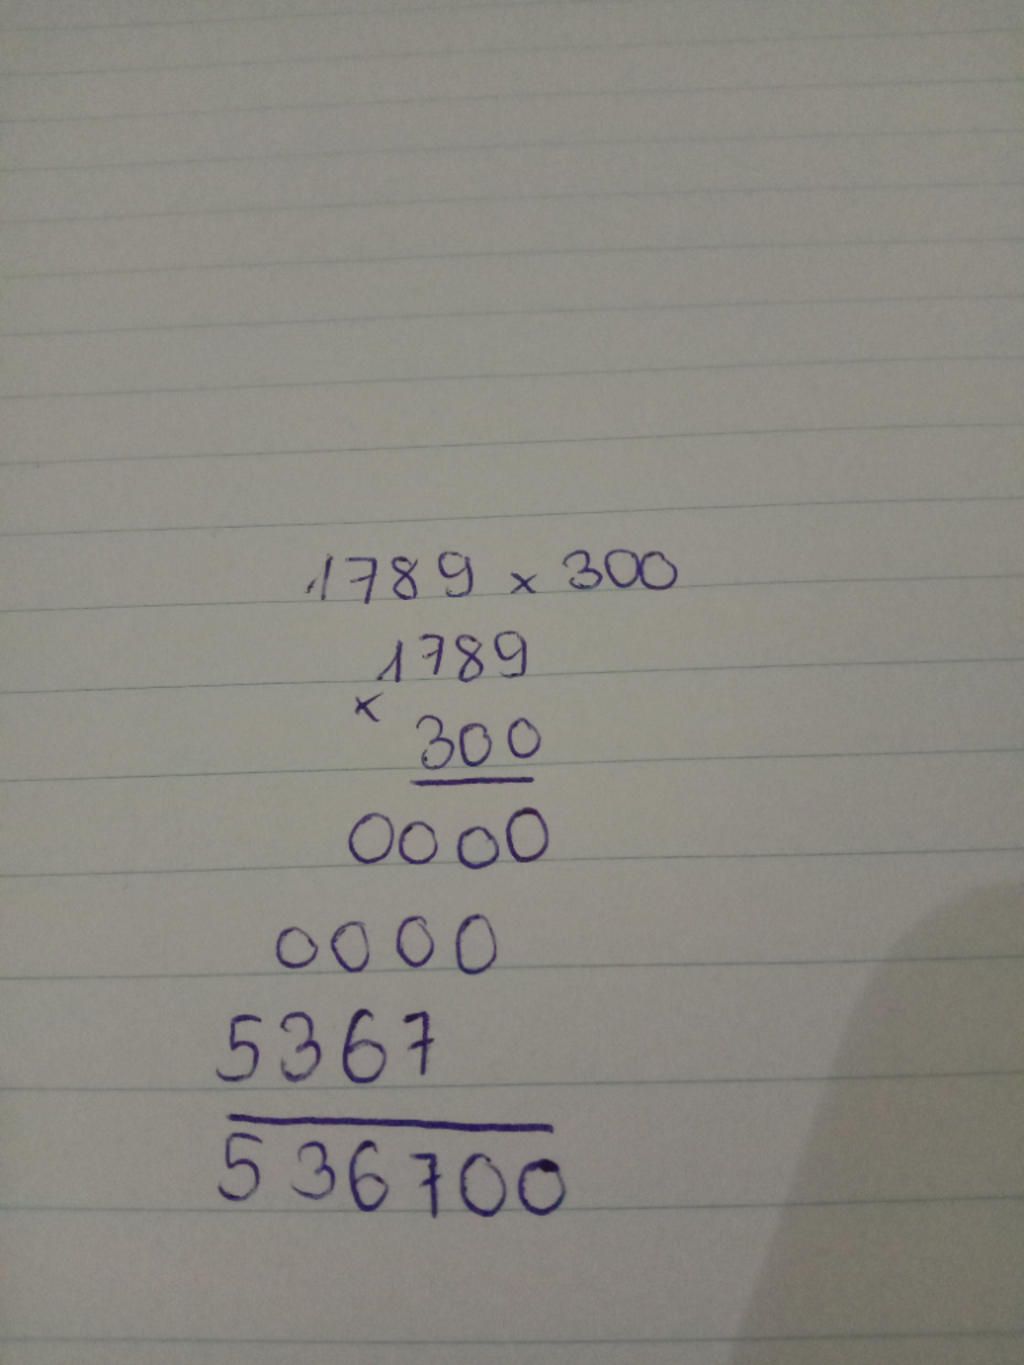 1789 x 300
1789
x
300
0000
0000
5367
536700